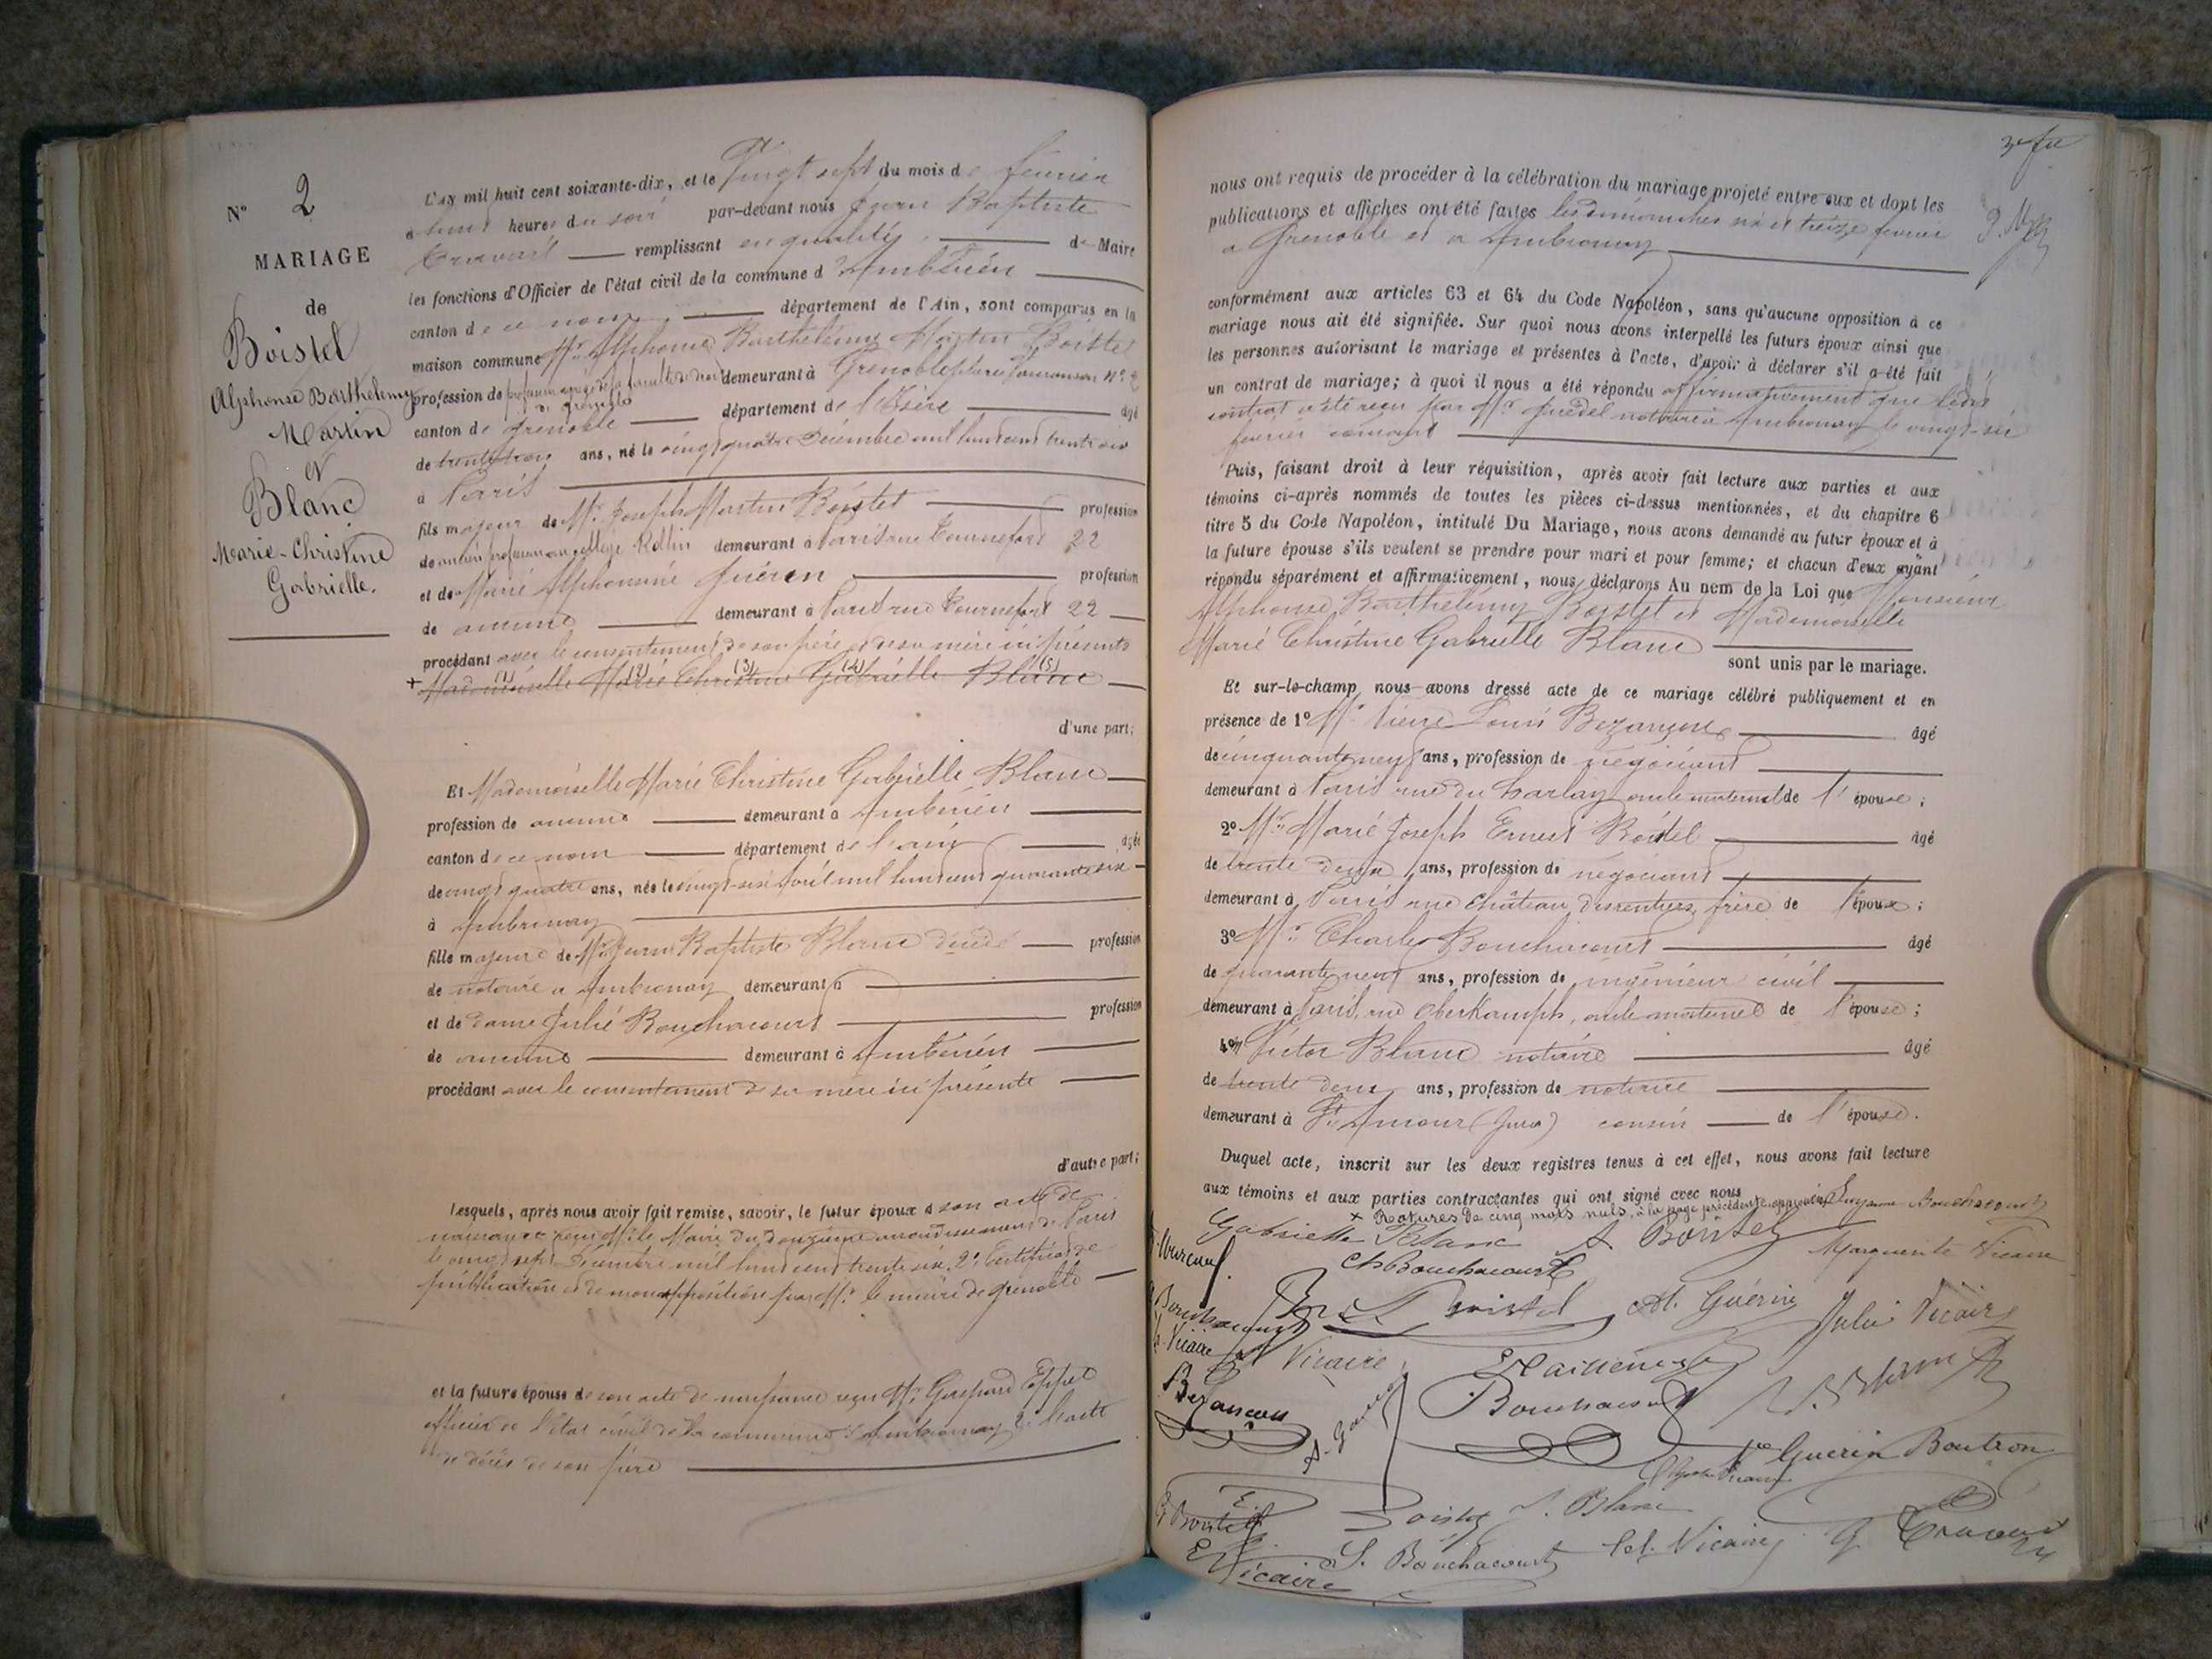 N° 2
MARIAGE
de
Boistel
Alphonse Barthélemy
Martin
et
Blanc
Marie-Christine
Gabrielle.
L'AN mil huit cent soixante-dix, et le vingt sept du mois de février
à heures du soir par-devant nous Jean Baptiste
Cravail remplissant en qualité de Maire
les fonctions d'Officier de l'état civil de la commune d'Ambérieu
canton de ce nom département de l'Ain, sont comparus en la
maison commune Mr Alphonse Barthélemy Martin Boistel
profession de professeur agrégé de la faculté de droit de Grenoble demeurant à Grenoble N° 2
canton de Grenoble département de l'Isère âgé
de trente trois ans, né le vingt quatre Décembre mil huit cent trente six
à Paris
fils majeur de Mr Joseph Martin Boistel profession
de ancien professeur au collège Rollin demeurant à Paris rue Tournefort 22
et de Marie Alphonsine Guérin profession
de aucune demeurant à Paris rue Tournefort 22
procédant avec le consentement de son père et de sa mère ici présents
+ Mademoiselle (1) Marie (2) Christine (3) Gabrielle (4) Blanc (5)
d'une part;
Et Mademoiselle Marie Christine Gabrielle Blanc
profession de aucune demeurant à Ambérieu
canton de ce nom département de l'Ain âgée
de vingt quatre ans, née le vingt-six mil huit cent quarante six
à Ambronay
fille majeure de Mr Jean Baptiste Blanc décédé profession
de notaire à Ambronay demeurant à
et de dame Julie Bouchacourt profession
de aucune demeurant à Ambérieu
procédant avec le consentement de sa mère ici présente
d'autre part;
Lesquels, après nous avoir fait remise, savoir, le futur époux d son acte de
naissance reçu Mr le Maire du douzième arrondissement de Paris
le vingt sept Décembre mil huit cent trente six, 2° Certificat de
publication et de non opposition par Mr le maire de Grenoble
et la future épouse de son acte de naissance reçu Mr Gaspard
officier de l'état civil de la commune d'Ambronay 2° l'acte
de décès de son père
nous ont requis de procéder à la célébration du mariage projeté entre eux et dont les
publications et affiches ont été faites les dimanches six et treize février
à Grenoble et à Ambronay
conformément aux articles 63 et 64 du Code Napoléon, sans qu'aucune opposition à ce
mariage nous ait été signifiée. Sur quoi nous avons interpellé les futurs époux ainsi que
les personnes autorisant le mariage et présentes à l'acte, d'avoir à déclarer s'il a été fait
un contrat de mariage; à quoi il nous a été répondu affirmativement que ledit
contrat a été reçu par Mr notaire à Ambronay le vingt-six
février courant
Puis, faisant droit à leur réquisition, après avoir fait lecture aux parties et aux
témoins ci-après nommés de toutes les pièces ci-dessus mentionnées, et du chapitre 6
titre 5 du Code Napoléon, intitulé Du Mariage, nous avons demandé au futur époux et à
la future épouse s'ils veulent se prendre pour mari et pour femme; et chacun d'eux ayant
répondu séparément et affirmativement, nous déclarons Au nom de la Loi que Monsieur
Alphonse Barthélemy Boistel et Mademoiselle
Marie Christine Gabrielle Blanc
sont unis par le mariage.
Et sur-le-champ nous avons dressé acte de ce mariage célébré publiquement et en
présence de 1° Mr Pierre Louis Bezançon âgé
de cinquante neuf ans, profession de négociant
demeurant à Paris rue du Harlay oncle maternel de l'épouse;
2° Mr Marie Joseph Ernest Boistel âgé
de trente deux ans, profession de négociant
demeurant à Paris rue Château des rentiers, frère de l'époux;
3° Mr Charles Bouchacourt âgé
de quarante neuf ans, profession de ingénieur civil
demeurant à Paris, rue Oberkampf, oncle maternel de l'épouse;
4° Victor Blanc notaire âgé
de trente deux ans, profession de notaire
demeurant à St Amour (Jura) cousin de l'épouse.
Duquel acte, inscrit sur les deux registres tenus à cet effet, nous avons fait lecture
aux témoins et aux parties contractantes qui ont signé avec nous
+ Ratures de cinq mots nuls, à la page précédente approuvées
Bouchacourt
Gabrielle Blanc A Boistel Marguerite Vicaire
Ch Bouchacourt
Boistel Al. Guérin Julie Vicaire
Bouchacourt
Vicaire Vicaire
Bezançon
Bouchacourt
Ve Guérin Boutron
Boistel
J. Blanc
E Vicaire S. Bouchacourt Vicaire